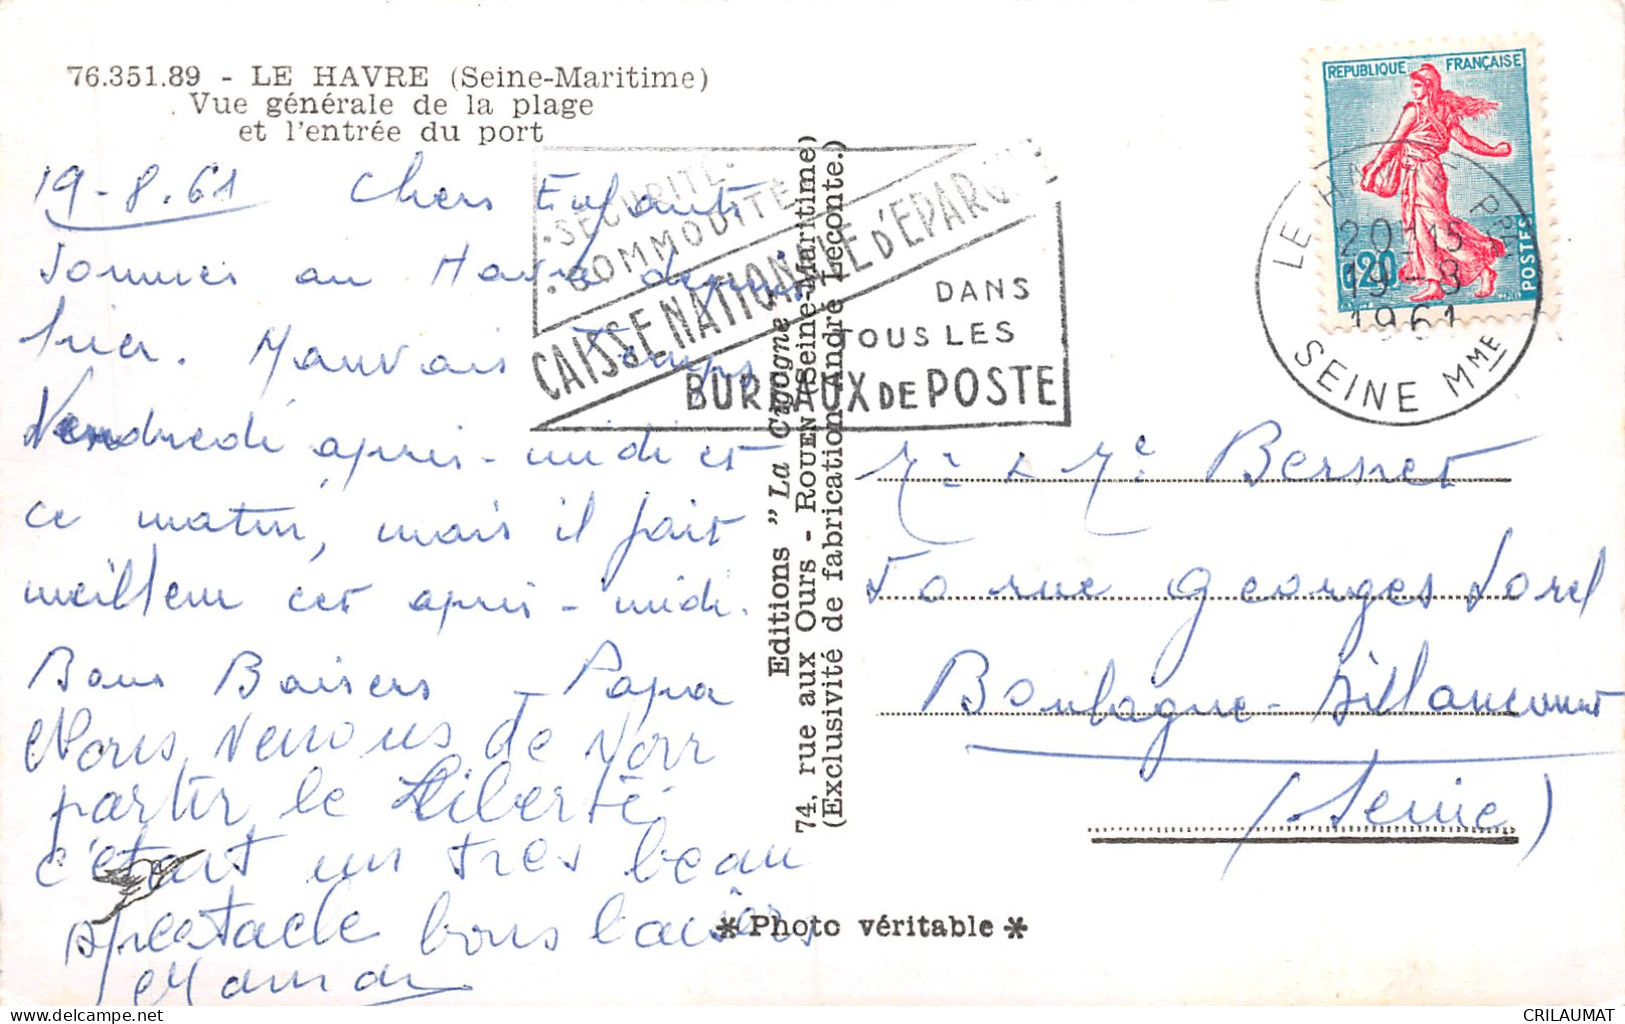 76.351.89 - LE HAVRE (Seine-Maritime)
Vue générale de la plage
et l'entrée du port
19-8.61 Chers Enfants
Sommes au Havre depuis
hier. Mauvais Temps
Vendredi après-midi et
ce matin, mais il fait
meilleur cet après-midi.
Bons Baisers - Papa
Nous venons de voir
partir le Liberté
c'était un tres beau
spectacle bons baisers
Maman
SÉCURITÉ.
COMMODITÉ
CAISSE NATIONALE D'ÉPARGNE
DANS
TOUS LES
BUREAUX DE POSTE
Editions "La Cigogne"
74, rue aux Ours - ROUEN (Seine-Maritime)
(Exclusivité de fabrication André Leconte.)
REPUBLIQUE FRANÇAISE
0,20
POSTES
LE HAVRE PPAL
20H15
19-8
1961
SEINE MME
Mr & Me Bernet
50 rue Georges Sorel
Boulogne-Billancourt
(Seine)
* Photo véritable *
CRILAUMAT